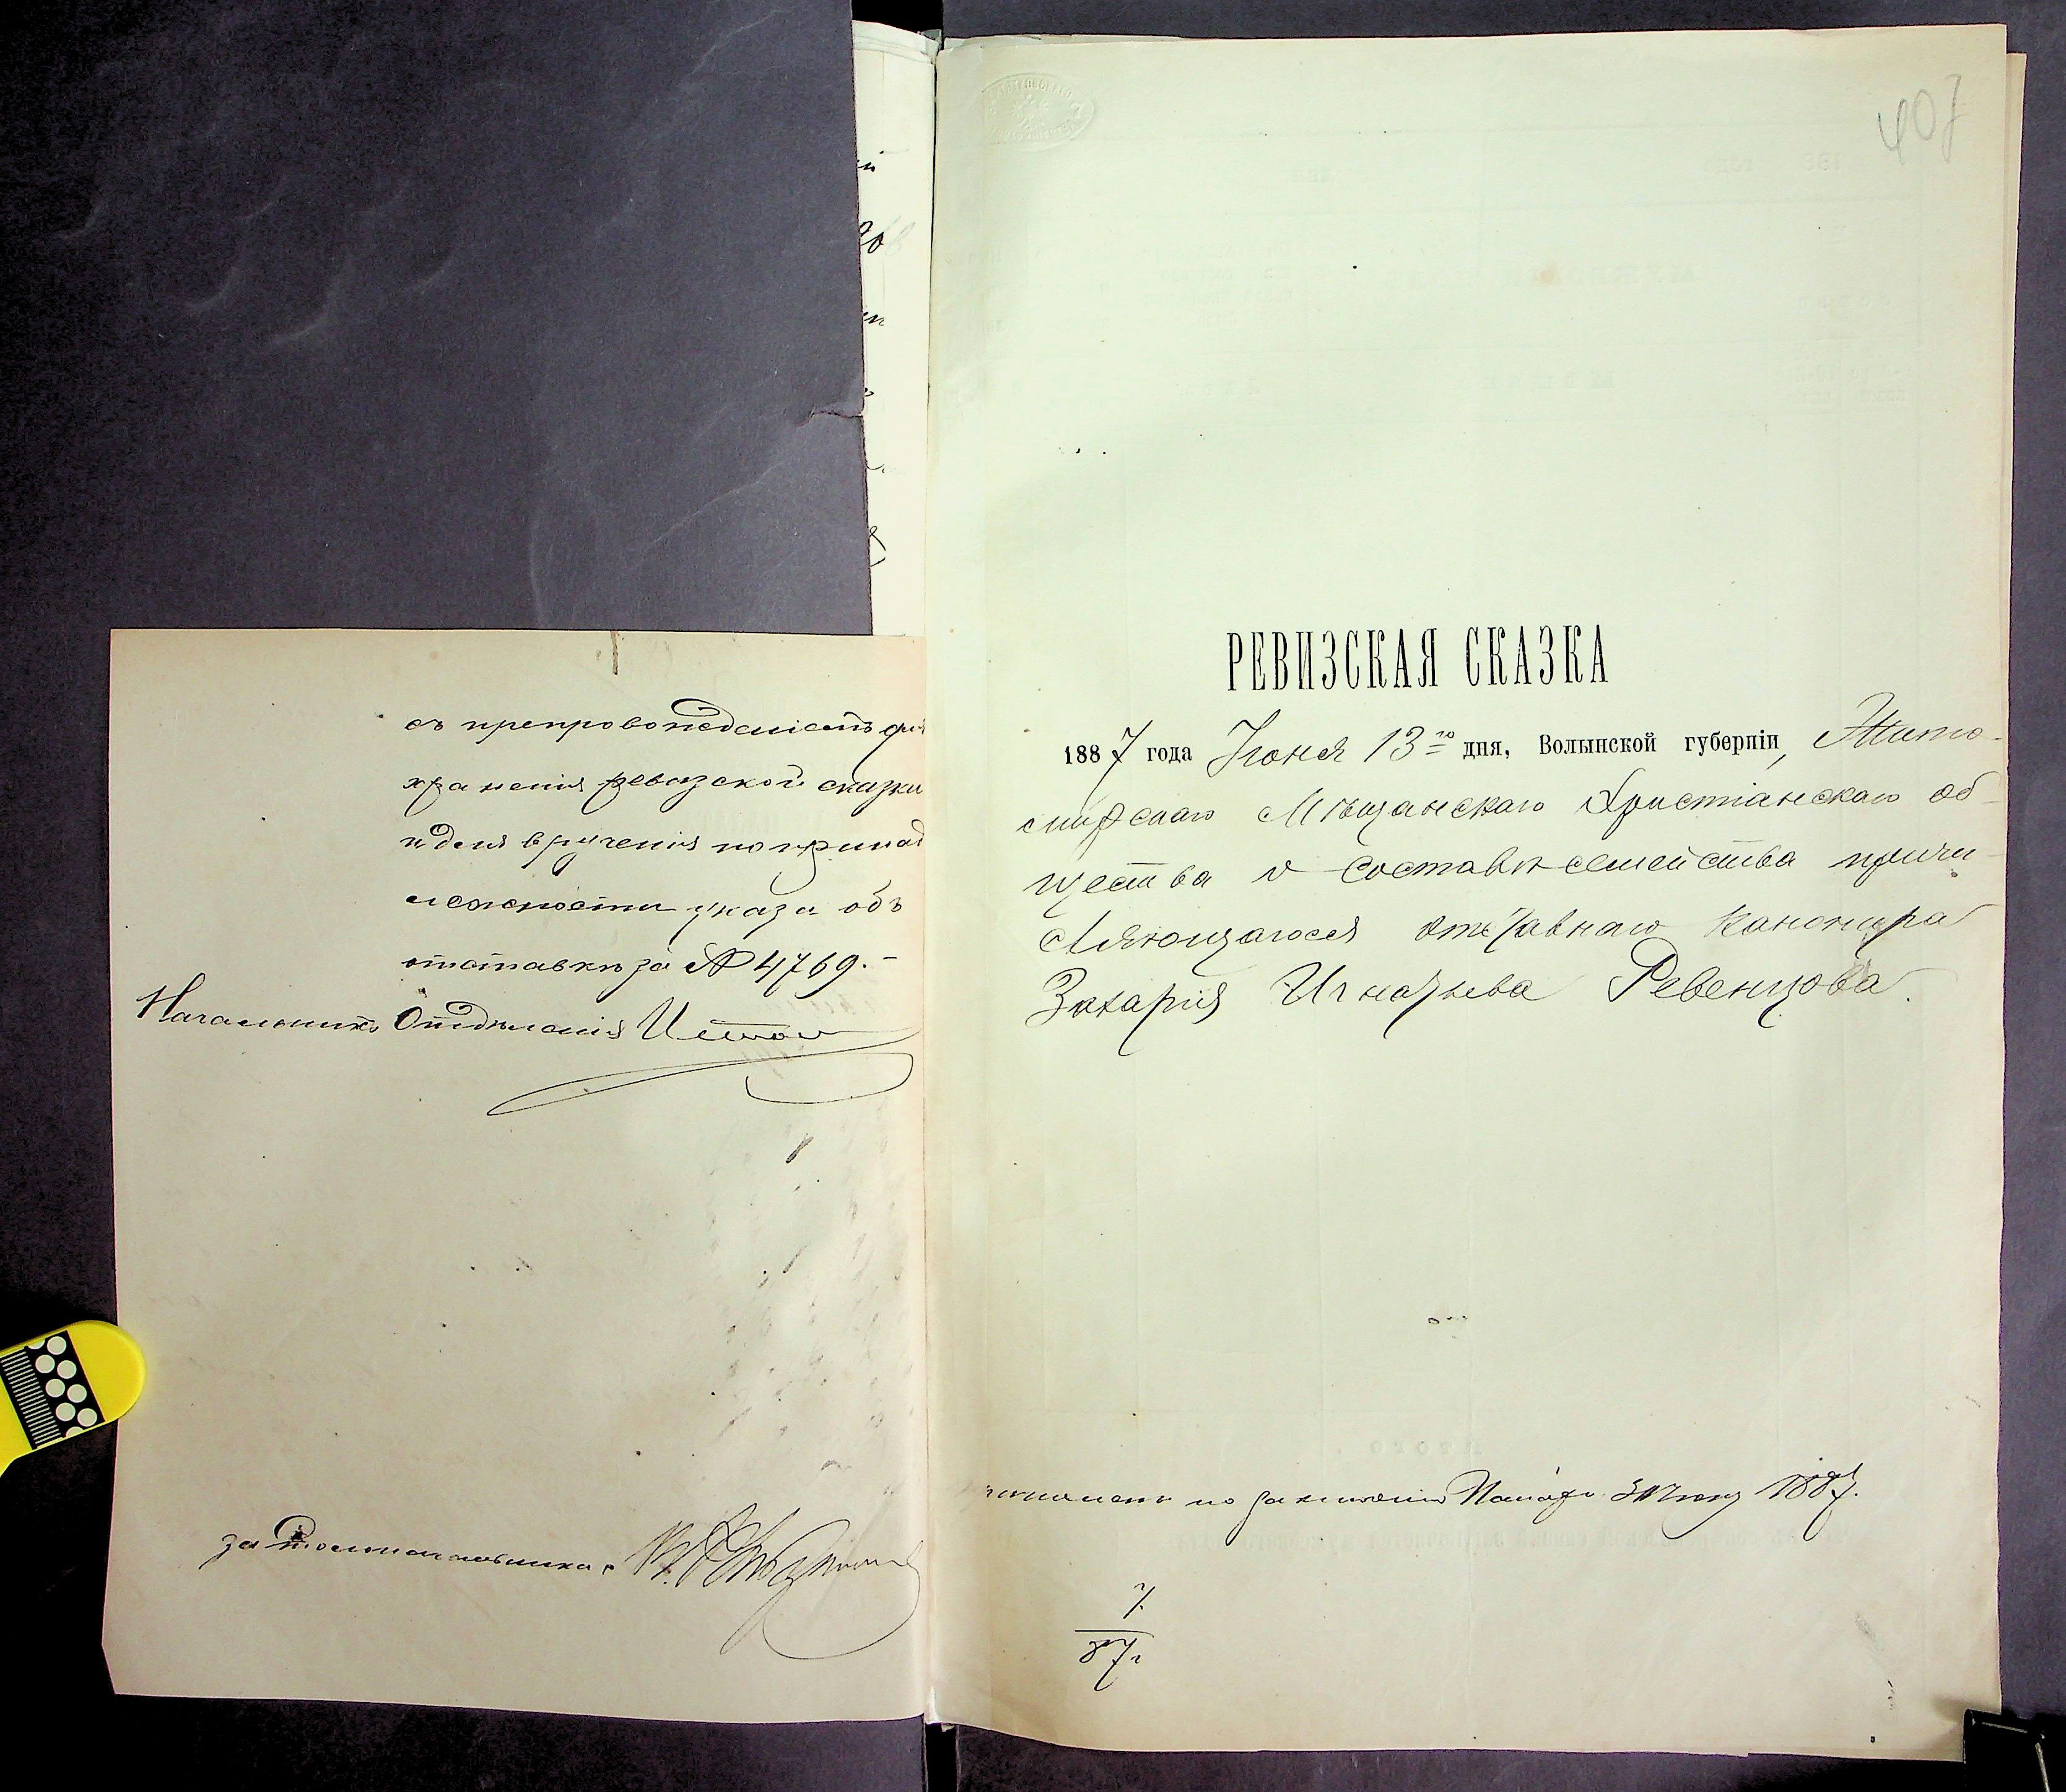 съ препровожденіемъ для
храненія ревизской сказки
и для врученія по принад
лежности указа объ
отставкѣ за № 4769.-
Начальникъ Отдѣленія
за Столоначальника
407
РЕВИЗСКАЯ СКАЗКА
1887 года Іюня 13го дня, Волынской губерніи, Жито-
мирскаго Мѣщанскаго Христіанскаго об-
щества о составѣ семейства причи-
сляющагося отставнаго канонира
Захарія Игнатьева Ревенцова.
по заключенію Палаты 30 Іюня 1887.
7
87 г